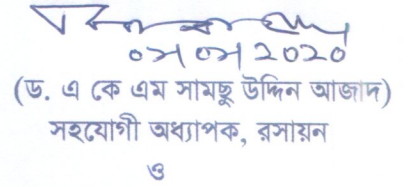 ০৯/০৯/২০২০
(ড. এ কে এম সামছু উদ্দিন আজাদ)
সহযোগী অধ্যাপক, রসায়ন
ও